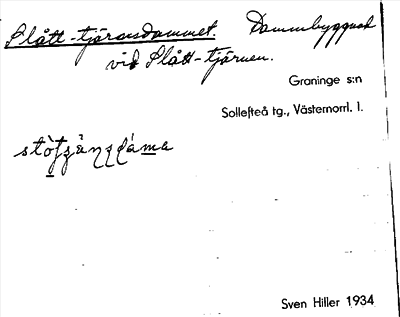 Slått-tjärnsdammet. Dammbyggnad
vid Slått-tjärnen.
Graninge s:n
Sollefteå tg., Västernorrl. l.
Sven Hiller 1934